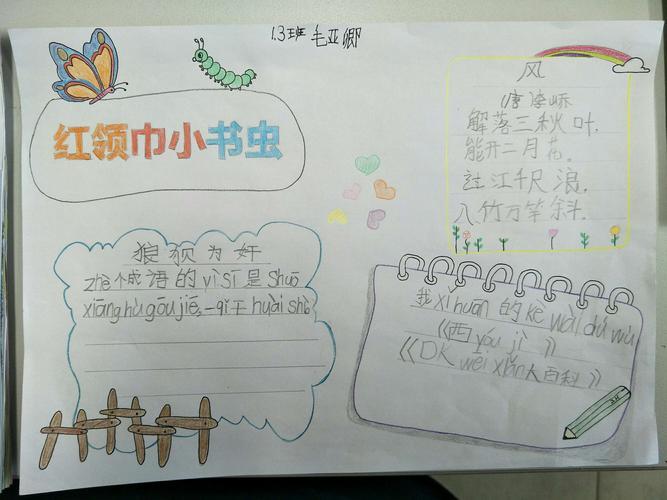 1.3班 毛亚卿
红领巾小书虫
风
唐 李峤
解落三秋叶.
能开二月花。
过江千尺浪.
入竹万竿斜.
狼狈为奸
zhè个成语的yìsī是Shuō
xiānghùgōujié,一qǐ干huàishì
我xǐhuān的kèwàidúwù
《西yóujì》
《DK wēixiǎn大百科》